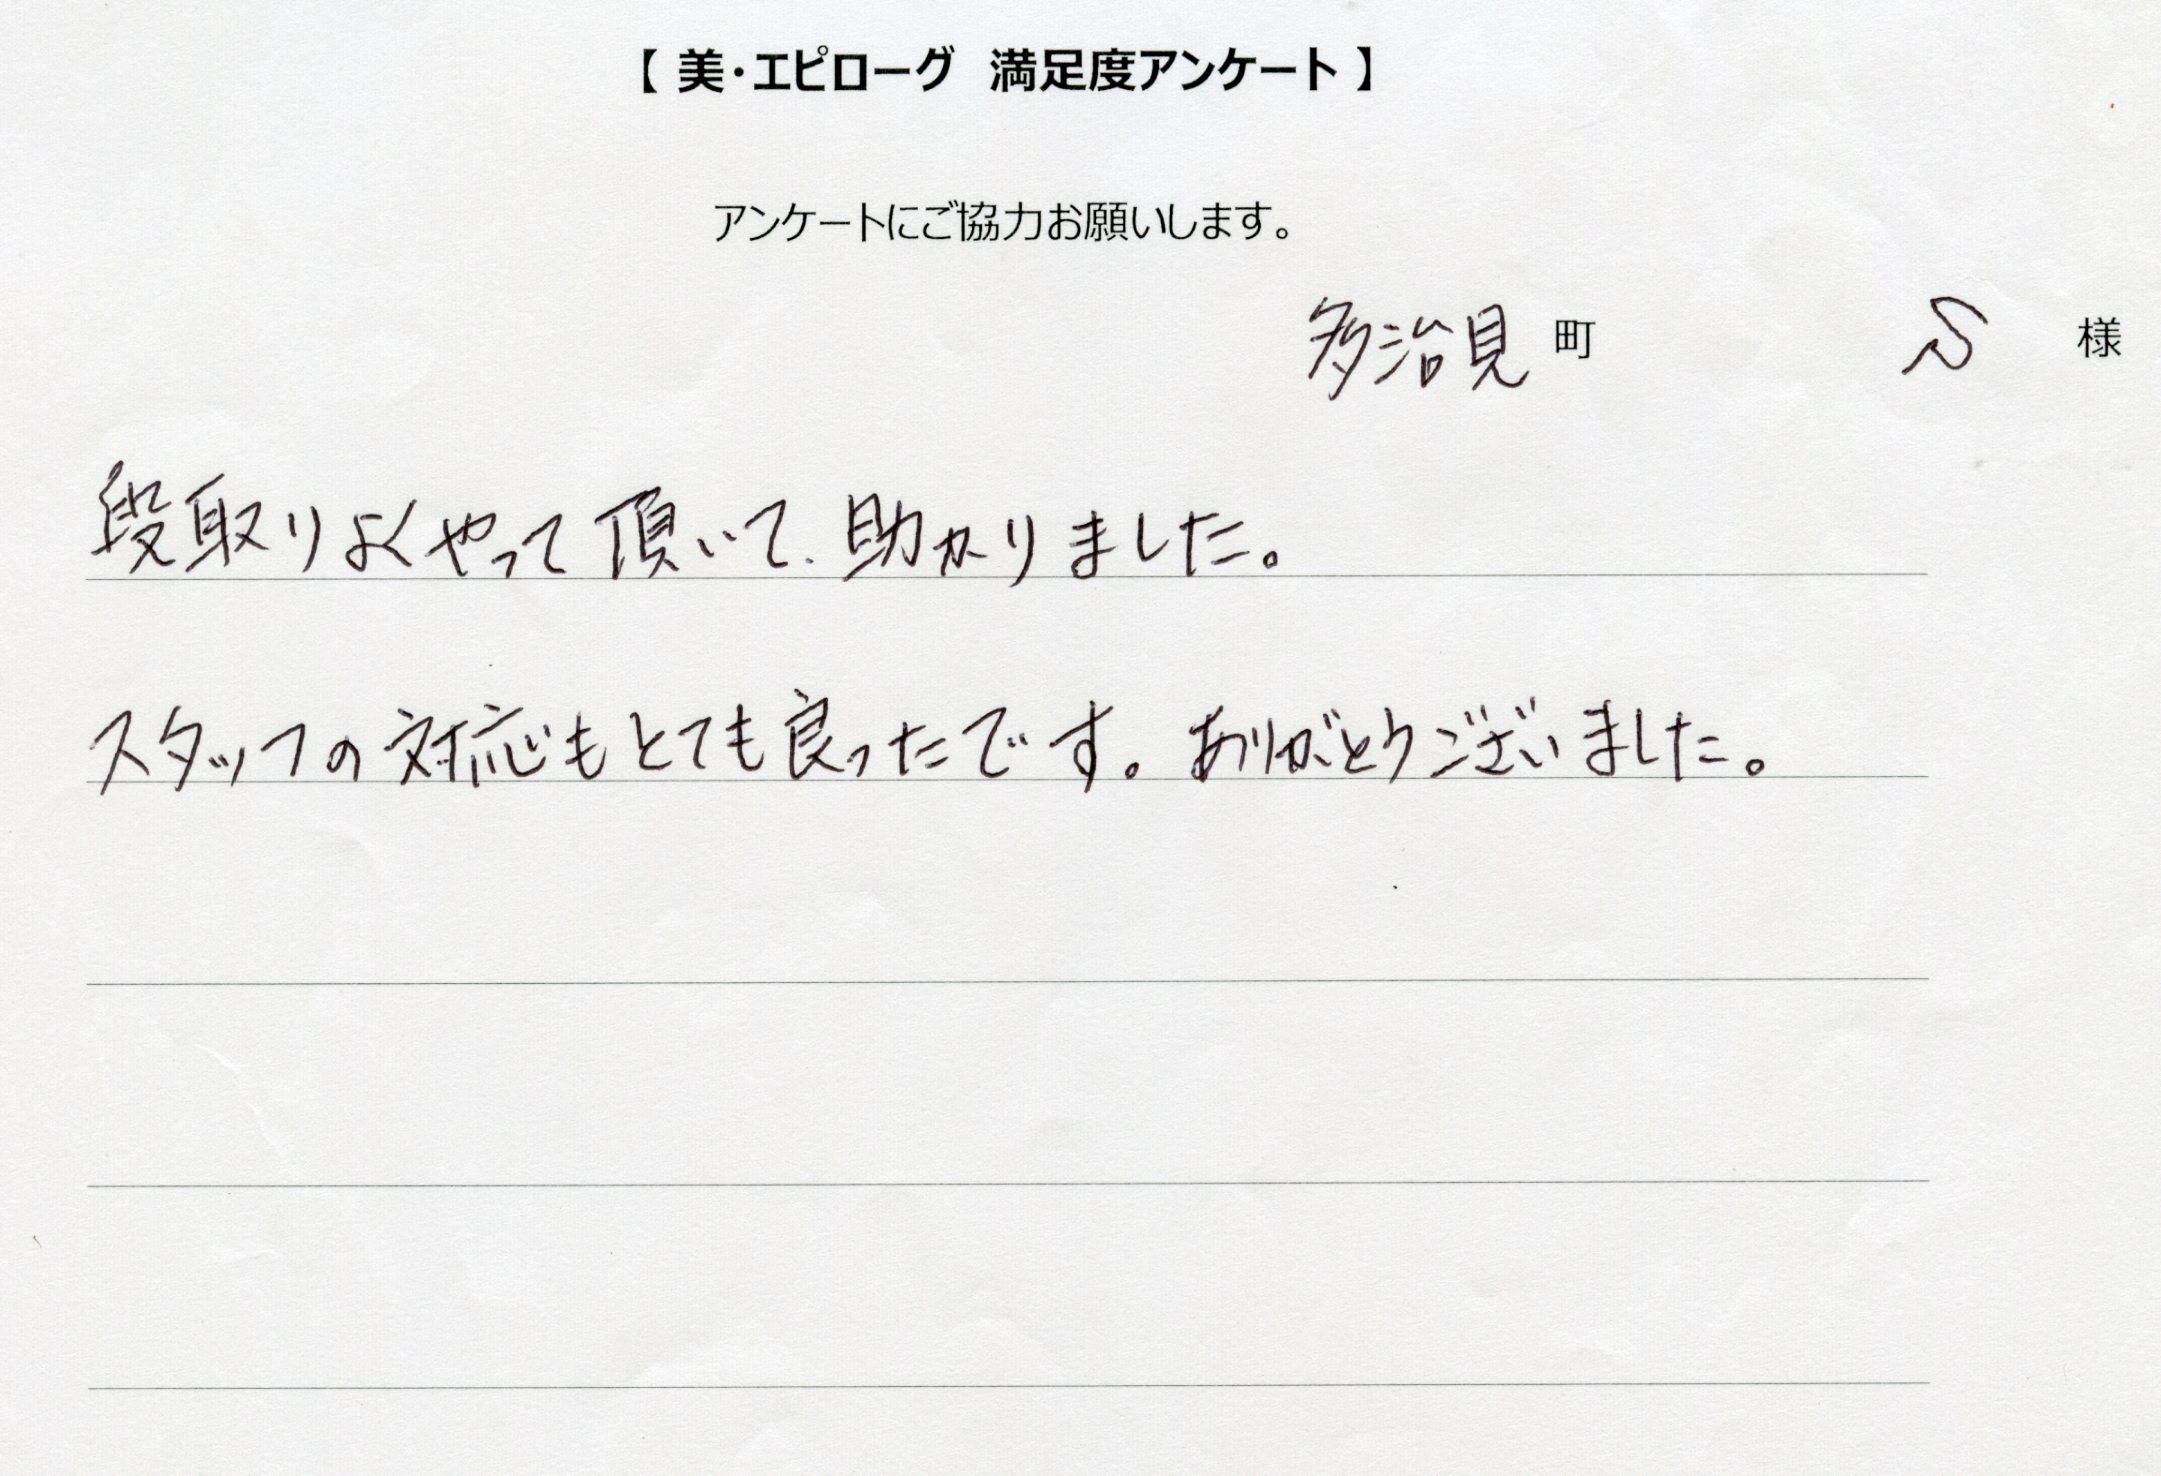 【 美・エピローグ　満足度アンケート 】
アンケートにご協力お願いします。
多治見町　S　様
段取りよくやって頂いて、助かりました。
スタッフの対応もとても良ったです。ありがとうございました。